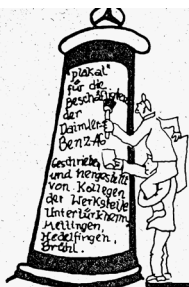 "plakat"
für die
Beschäftigten
der
Daimler-
Benz-AG
Geschrieben
und hergestellt
von Kollegen
der Werksteile
Untertürkheim,
Mettingen,
Hedelfingen,
Brühl.